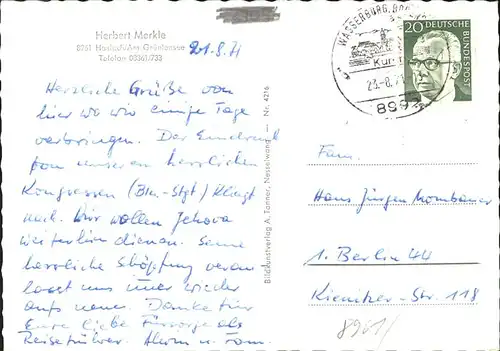 Herbert Merkle
8961 Haslach/Am Grüntensee
Telefon 08361/733
21.8.71
Herzliche Grüße von
hier wo wir einige Tage
verbringen. Der Eindruck
von unseren herrlichen
Kongressen (Bln.-Stgt) klingt
nach. Wir wollen Jehova
weiterhin dienen. Seine
herrliche Schöpfung veran
lasst uns immer wieder
aufs neue. Danke für
Eure liebe Fürsorge als
Reiseführer. u. Fam.
Bildkunstverlag A. Tanner, Nesselwang — Nr. 4216
WASSERBURG, BOD
Kur
23.-8.71
899
20
DEUTSCHE BUNDESPOST
Fam.
Hans Jürgen Mombauer
1. Berlin 44
Kienitzer-Str. 118
8961/